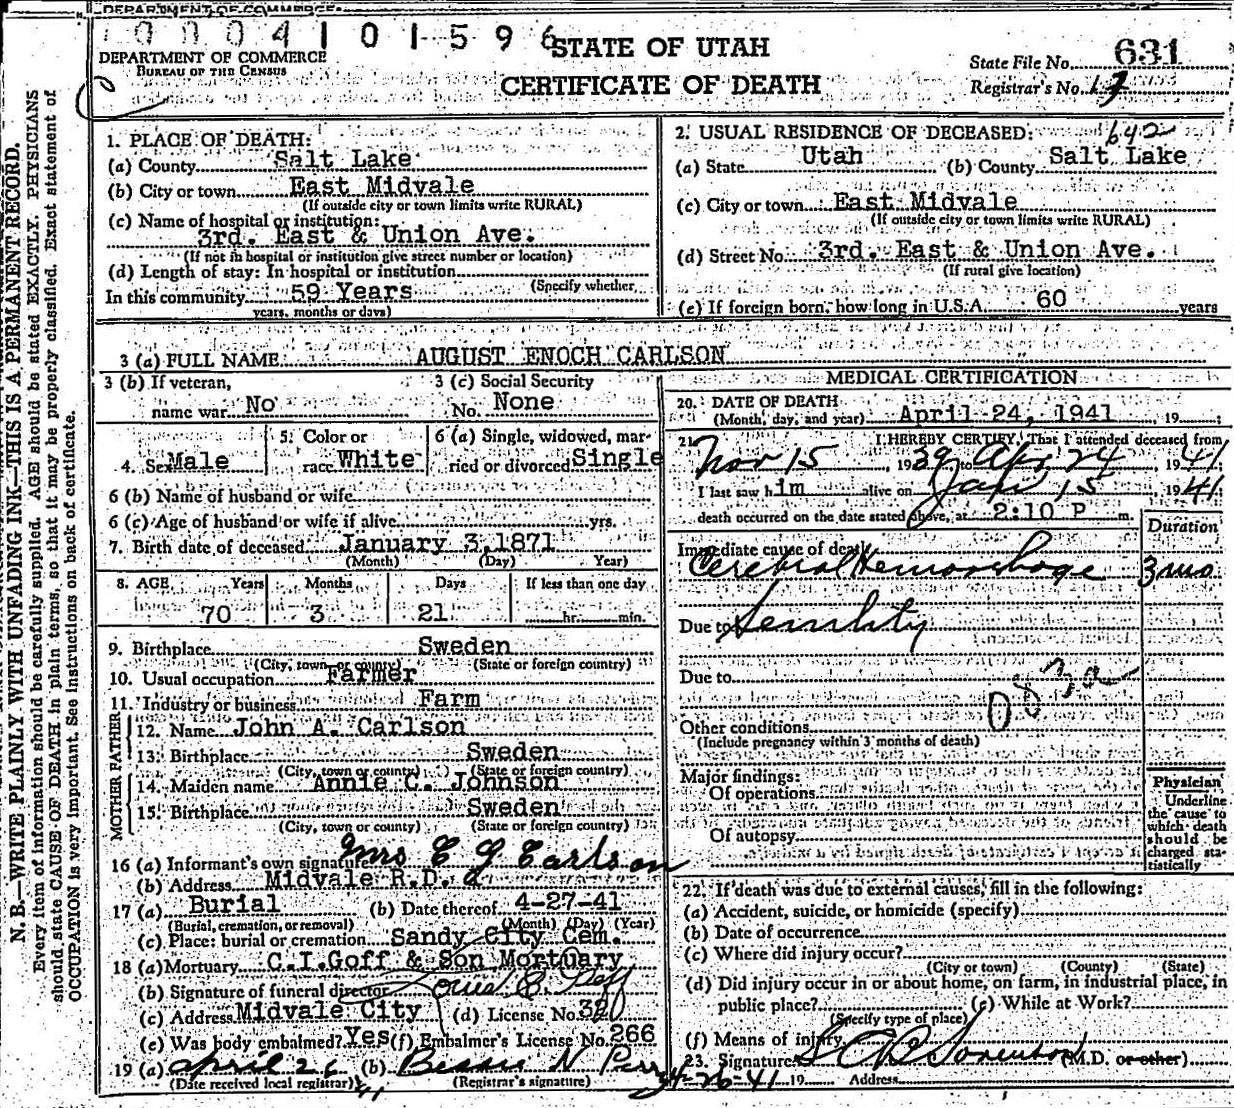 DEPARTMENT OF COMMERCE
0004101596
STATE OF UTAH
CERTIFICATE OF DEATH
DEPARTMENT OF COMMERCE
BUREAU OF THE CENSUS
State File No. 631
Registrar's No. 17
N. B.—WRITE PLAINLY WITH UNFADING INK—THIS IS A PERMANENT RECORD.
Every item of information should be carefully supplied. AGE should be stated EXACTLY. PHYSICIANS
should state CAUSE OF DEATH in plain terms, so that it may be properly classified. Exact statement of
OCCUPATION is very important. See instructions on back of certificate.
1. PLACE OF DEATH:
(a) County Salt Lake
(b) City or town East Midvale
(If outside city or town limits write RURAL)
(c) Name of hospital or institution:
3rd. East & Union Ave.
(If not in hospital or institution give street number or location)
(d) Length of stay: In hospital or institution
(Specify whether
In this community 59 Years
years, months or days)
2. USUAL RESIDENCE OF DECEASED: 642
(a) State Utah (b) County Salt Lake
(c) City or town East Midvale
(If outside city or town limits write RURAL)
(d) Street No. 3rd. East & Union Ave.
(If rural give location)
(e) If foreign born, how long in U.S.A. 60 years
3 (a) FULL NAME AUGUST ENOCH CARLSON
3 (b) If veteran,
name war No
3 (c) Social Security
No. None
4. Sex Male
5. Color or
race White
6 (a) Single, widowed, mar-
ried or divorced Single
6 (b) Name of husband or wife
6 (c) Age of husband or wife if alive yrs.
7. Birth date of deceased January 3, 1871
(Month) (Day) Year)
8. AGE Years Months Days If less than one day
70 3 21 hr. min.
9. Birthplace Sweden
(City, town or county) (State or foreign country)
10. Usual occupation Farmer
11. Industry or business Farm
FATHER
12. Name John A. Carlson
13. Birthplace Sweden
(City, town or county) (State or foreign country)
MOTHER
14. Maiden name Annie C. Johnson
15. Birthplace Sweden
(City, town or county) (State or foreign country)
16 (a) Informant's own signature Mrs E G Carlson
(b) Address Midvale R.D.
17 (a) Burial (b) Date thereof 4-27-41
(Burial, cremation, or removal) (Month) (Day) (Year)
(c) Place: burial or cremation Sandy City Cem.
18 (a) Mortuary C.I.Goff & Son Mortuary
(b) Signature of funeral director Goff
(c) Address Midvale City (d) License No. 320
(e) Was body embalmed? Yes (f) Embalmer's License No. 266
19 (a) April 26 (b) N Perry
(Date received local registrar) 41 (Registrar's signature)
MEDICAL CERTIFICATION
20. DATE OF DEATH
(Month, day, and year) April 24, 1941, 19 ;
21. I HEREBY CERTIFY, That I attended deceased from
Nov 15, 1939 to Apr 24 1941
I last saw him alive on Jan 15 1941
death occurred on the date stated above, at 2:10 P m.
Duration
Immediate cause of death
Cerebral Hemorrhage 3 mo
Due to Senility
Due to
083a
Other conditions
(Include pregnancy within 3 months of death)
Major findings:
Of operations
Of autopsy
Physician
Underline
the cause to
which death
should be
charged sta-
tistically
22. If death was due to external causes, fill in the following:
(a) Accident, suicide, or homicide (specify)
(b) Date of occurrence
(c) Where did injury occur?
(City or town) (County) (State)
(d) Did injury occur in or about home, on farm, in industrial place, in
public place? (e) While at Work?
(Specify type of place)
(f) Means of injury
23. Signature Sorenson (M.D. or other)
4-26-41 19 Address